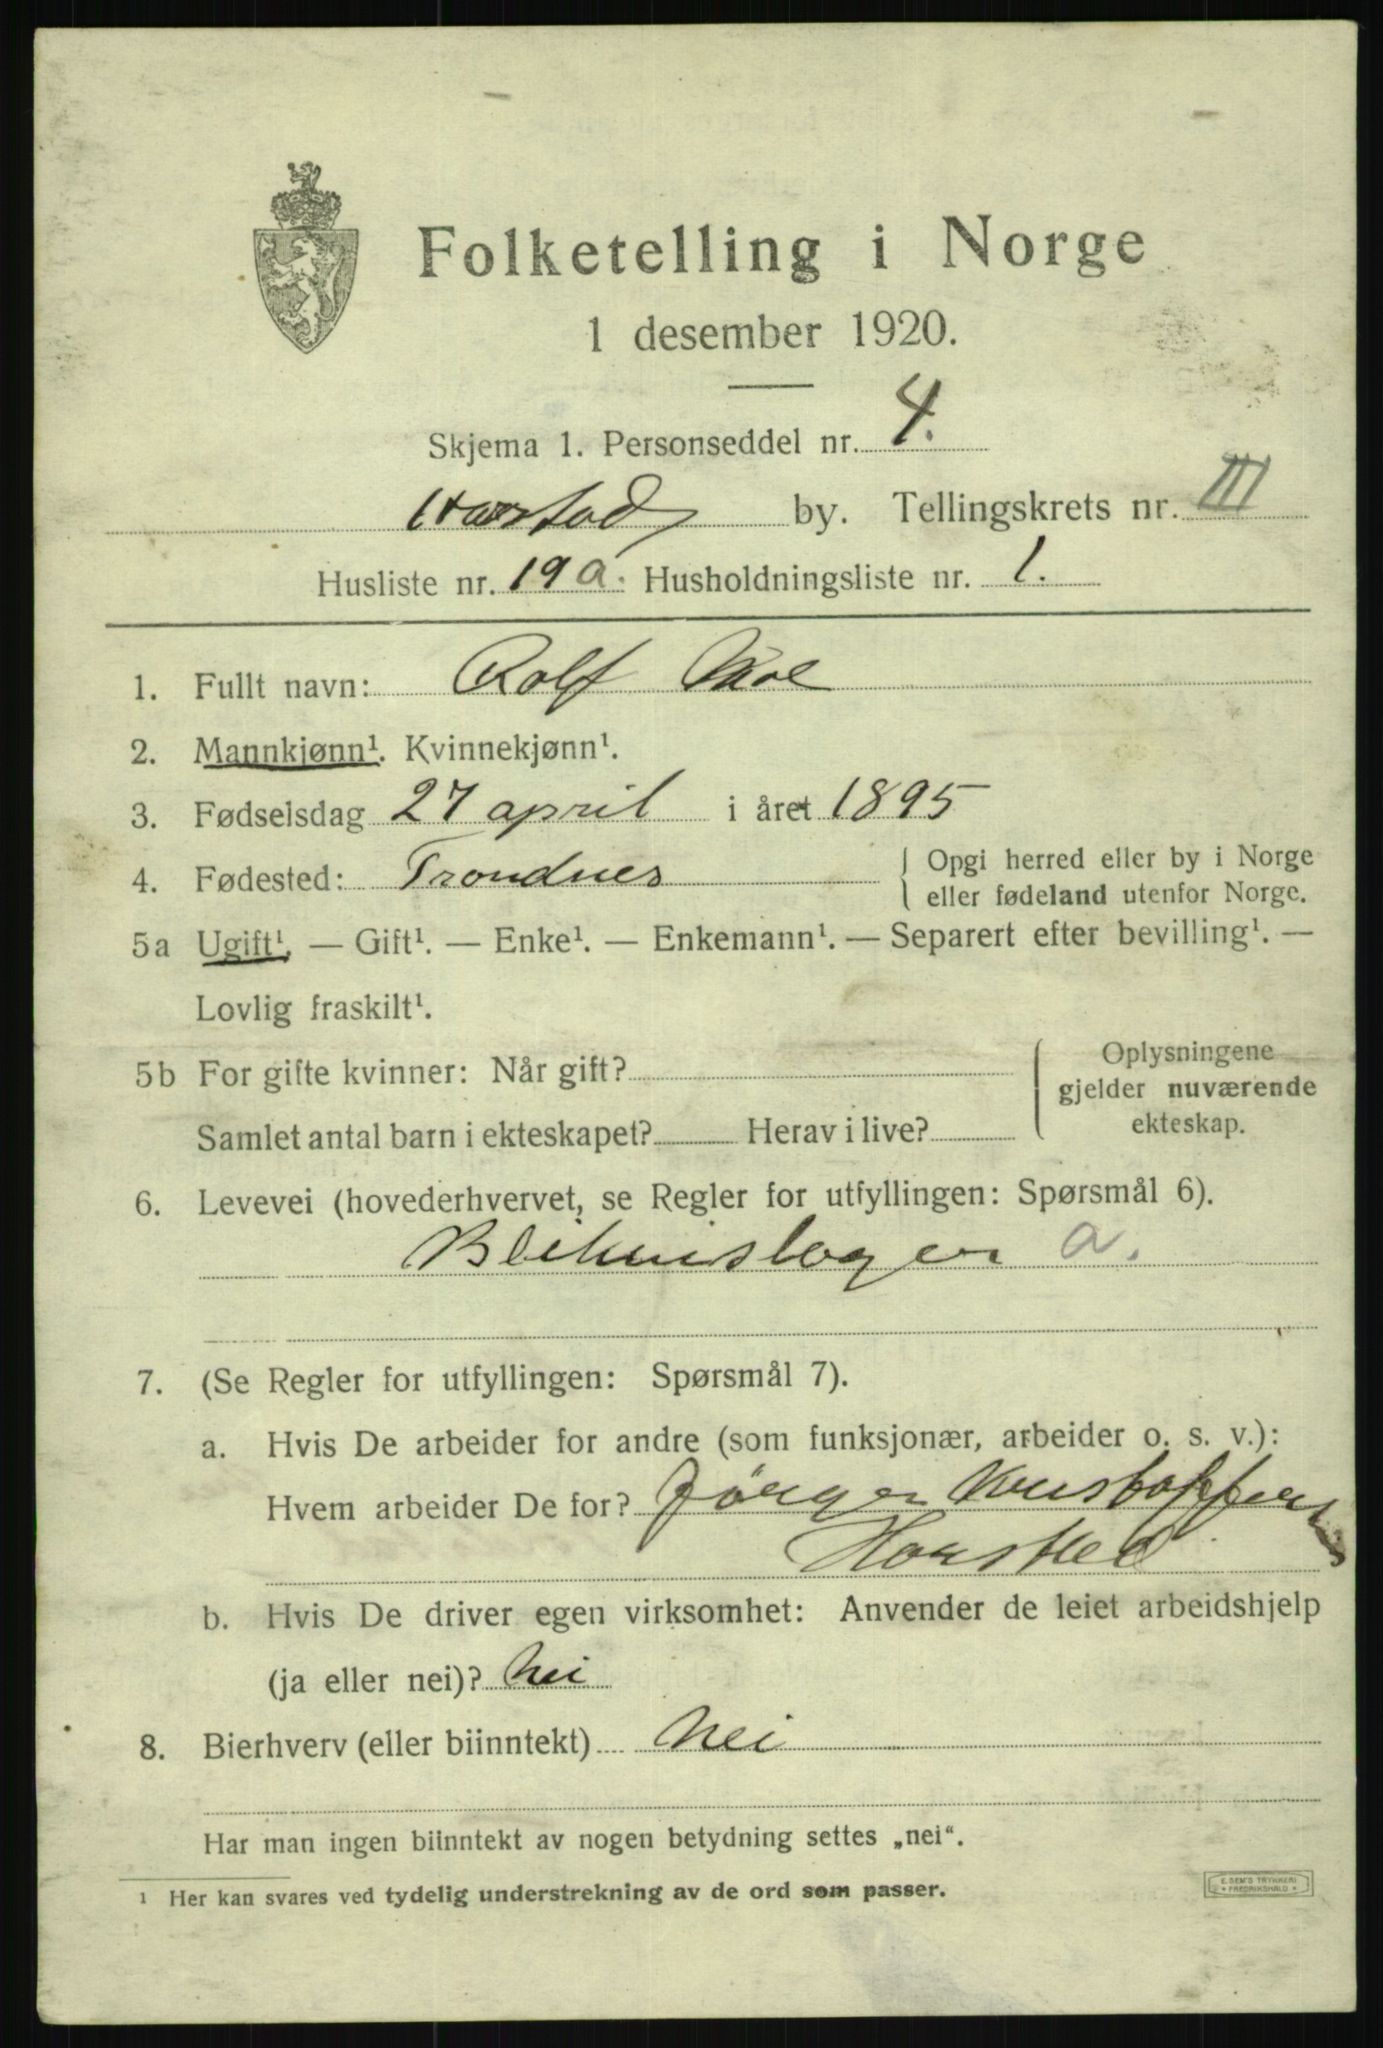 Folketelling i Norge
1 desember 1920.
Skjema 1. Personseddel nr. 4.
Harstad by. Tellingskrets nr. III
Husliste nr. 19 a. Husholdningsliste nr. 1.
1. Fullt navn: Rolf
2. Mannkjønn¹. Kvinnekjønn¹.
3. Fødselsdag 27 april i året 1895
4. Fødested: Trondnes { Opgi herred eller by i Norge
eller fødeland utenfor Norge.
5a Ugift¹. — Gift¹. — Enke¹. — Enkemann¹. — Separert efter bevilling¹. —
Lovlig fraskilt¹.
5b For gifte kvinner: Når gift? { Oplysningene
gjelder nuværende
ekteskap.
Samlet antal barn i ekteskapet? Herav i live?
6. Levevei (hovederhvervet, se Regler for utfyllingen: Spørsmål 6).
Blikkenslager a.
7. (Se Regler for utfyllingen: Spørsmål 7).
a. Hvis De arbeider for andre (som funksjonær, arbeider o. s. v.):
Hvem arbeider De for? Jörgen
Harstad
b. Hvis De driver egen virksomhet: Anvender de leiet arbeidshjelp
(ja eller nei)? Nei
8. Bierhverv (eller biinntekt) Nei
Har man ingen biinntekt av nogen betydning settes „nei“.
¹ Her kan svares ved tydelig understrekning av de ord som passer.
E. SEM'S TRYKKERI
* FREDRIKSHALD *